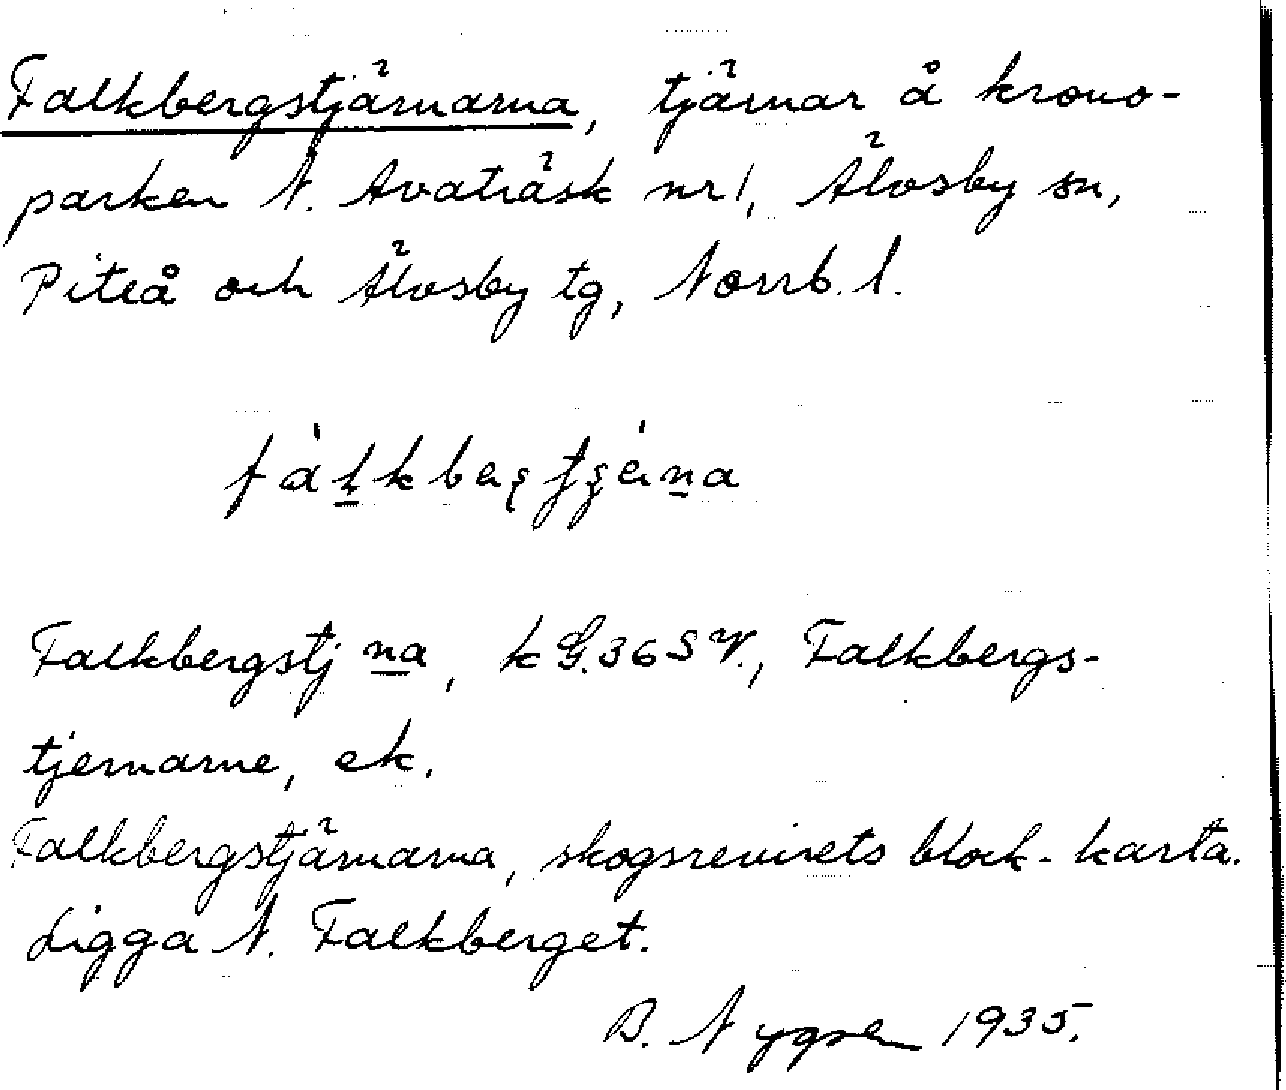 Falkbergstjärnarna, tjärnar å krono-
parken N. Avaträsk nr 1, Älvsby sn,
Piteå och Älvsby tg, Norrb. l.
Falkbergstj na, k G.36 S V., Falkbergs-
tjernarne, ek.
Falkbergstjärnarna, skogsrevirets block-karta.
Ligga N. Falkberget.
B. Nygren 1935.